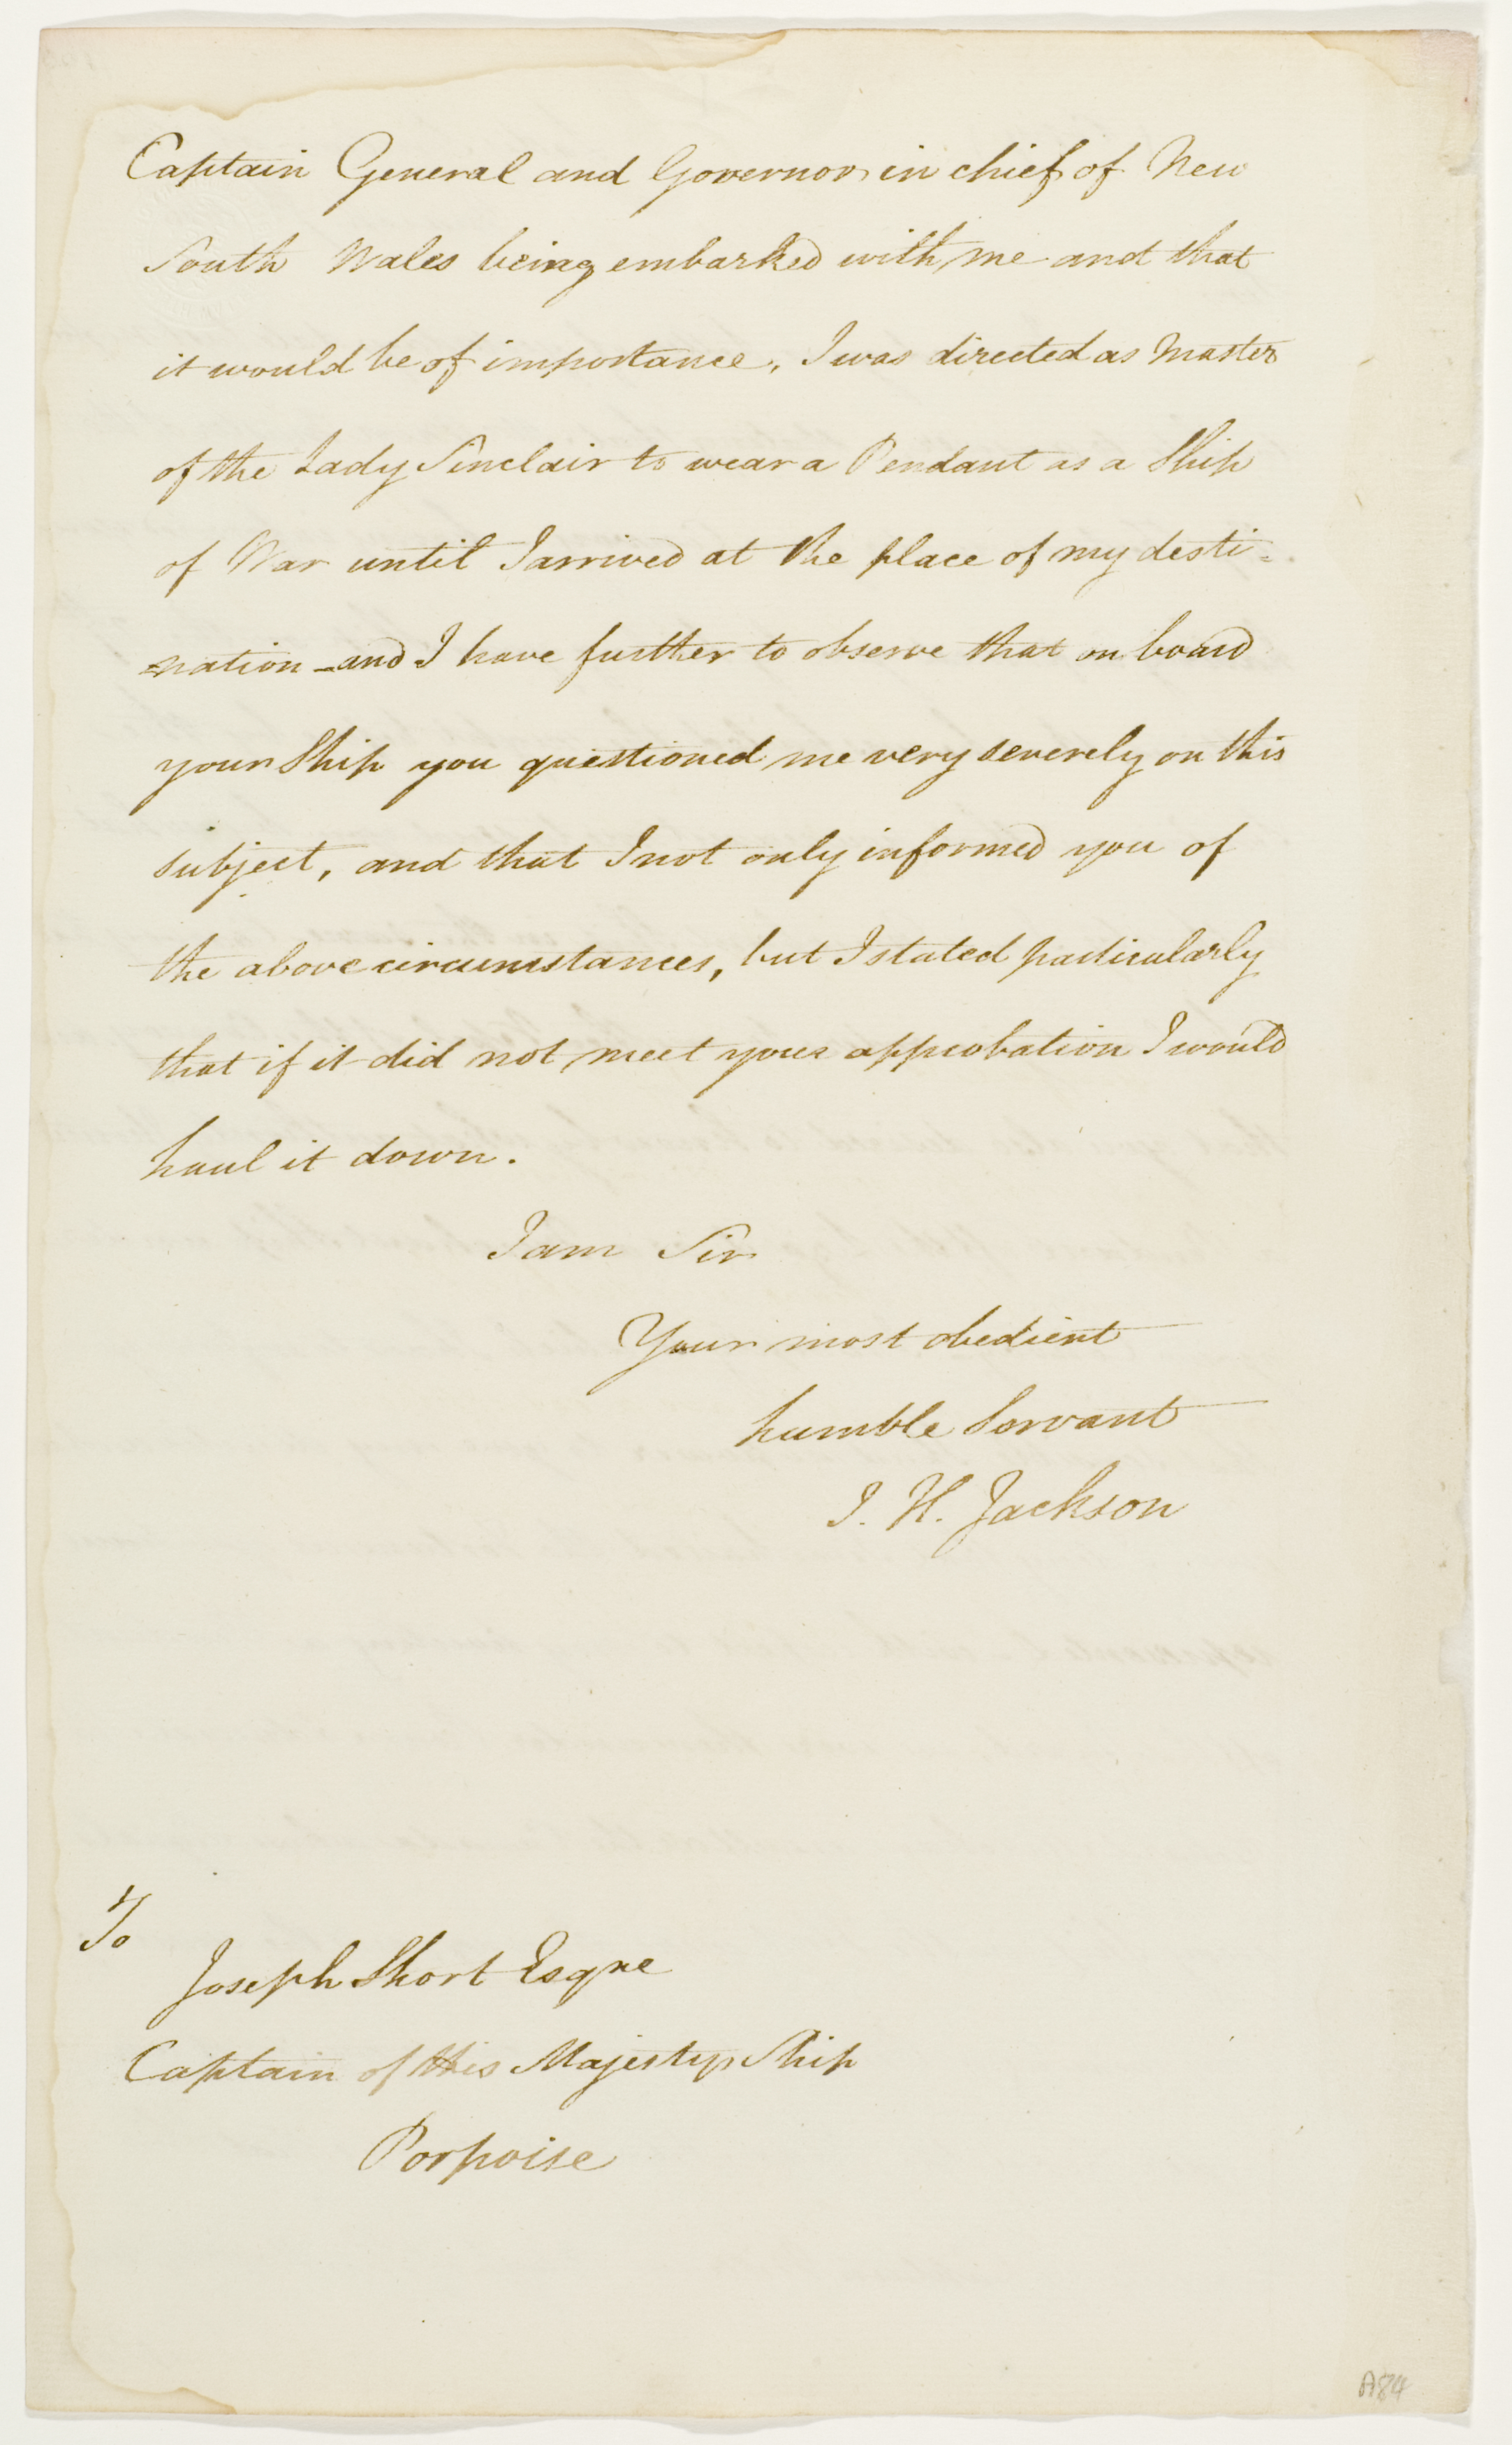 Captain General and Governor in chief of New
South Wales being embarked with me and that
it would be of importance, I was directed as Master
of the Lady Sinclair to wear a Pendant as a Ship
of War until I arrived at the place of my desti=
=nation - and I have further to observe that on board
your Ship you questioned me very severely on this
subject, and that I not only informed you of
the above circumstances, but I stated particularly
that if it did not meet your approbation I would
haul it down.
I am Sir
Your most obedient
humble Servant
J. H. Jackson
To
Joseph Short Esqre
Captain of His Majestys Ship
Porpoise
A84